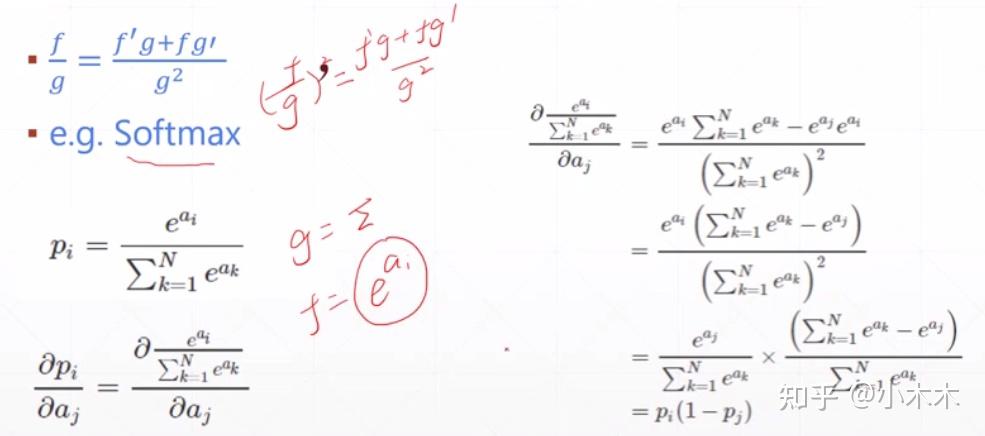 ▪ f/g = (f′g+fg′)/g²
(f/g)′ = (f′g+fg′)/g²
▪ e.g. Softmax
p_i = e^{a_i} / ∑_{k=1}^{N} e^{a_k}
g = Σ
f = e^{a_i}
∂p_i/∂a_j = ∂(e^{a_i} / ∑_{k=1}^{N} e^{a_k}) / ∂a_j
∂(e^{a_i} / ∑_{k=1}^{N} e^{a_k}) / ∂a_j = (e^{a_i} ∑_{k=1}^{N} e^{a_k} − e^{a_j} e^{a_i}) / (∑_{k=1}^{N} e^{a_k})²
= e^{a_i} (∑_{k=1}^{N} e^{a_k} − e^{a_j}) / (∑_{k=1}^{N} e^{a_k})²
= e^{a_j} / ∑_{k=1}^{N} e^{a_k} × (∑_{k=1}^{N} e^{a_k} − e^{a_j}) / ∑_{k=1}^{N} e^{a_k}
= p_i(1 − p_j)
知乎 @小木木